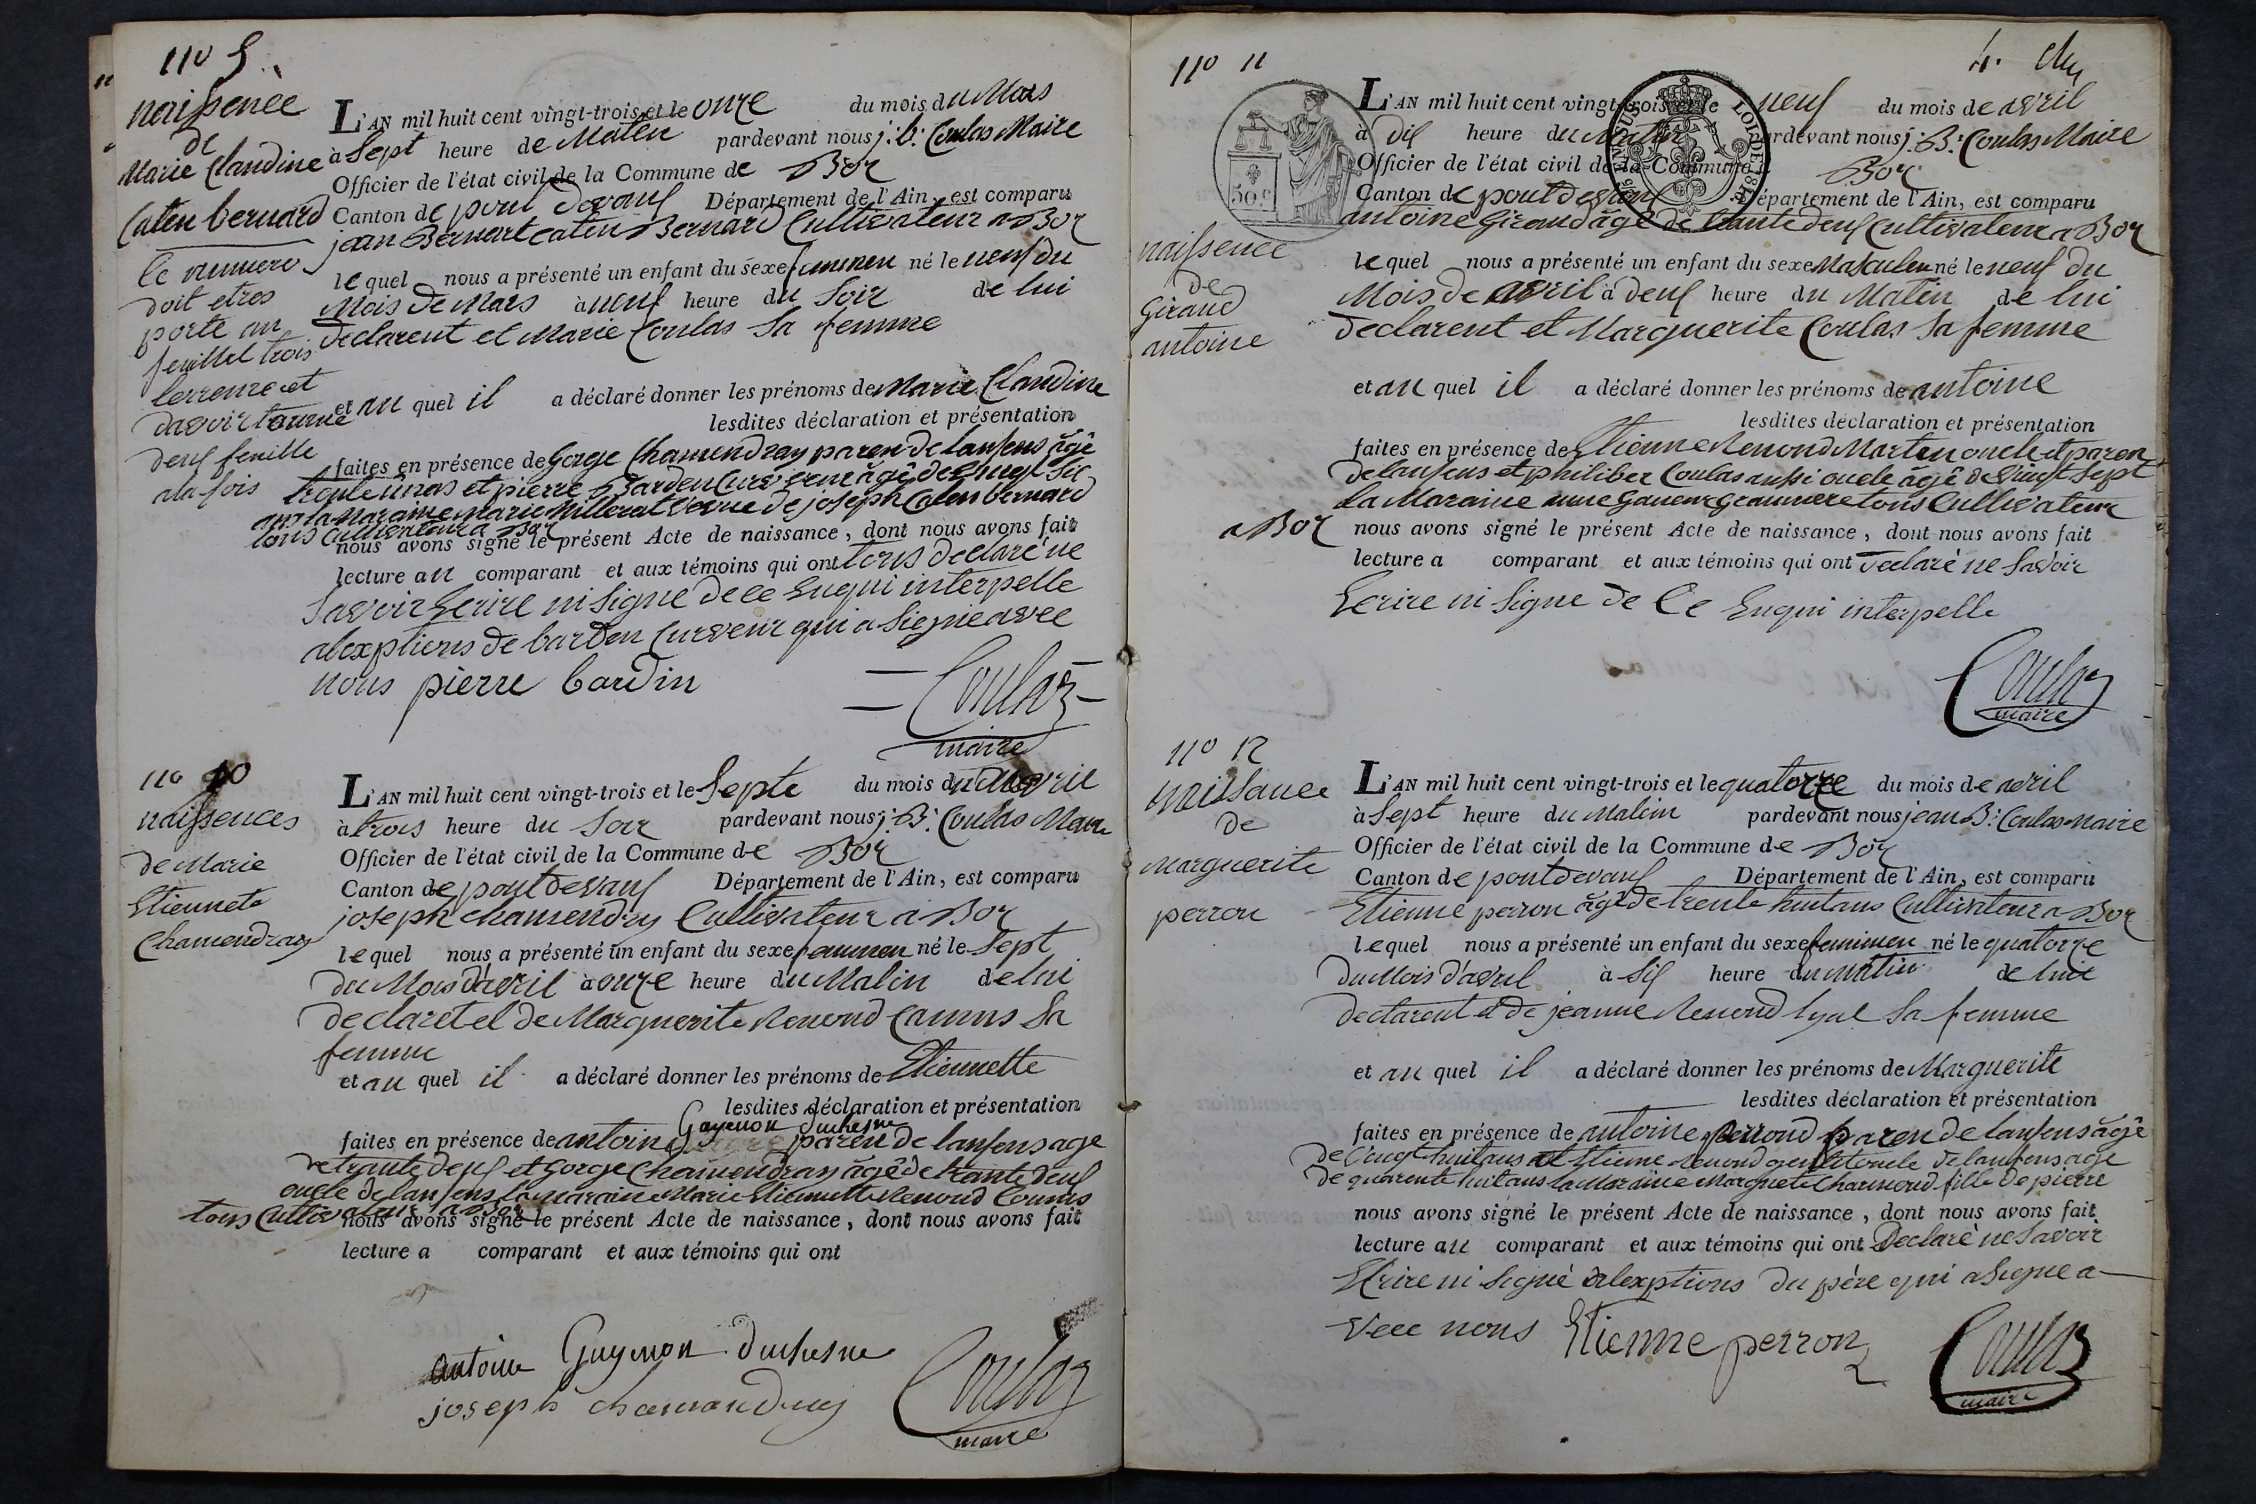 no 9
naissence
de
Marie Claudine
Caten bernard
le numero
doit etres
porte au
feuillet trois
lerreure et
davoir tourne
deux feuille
ala fois
L'AN mil huit cent vingt-trois et le onze du mois du Mars
à Sept heure de Maten pardevant nous j: b: Coulas Maire
Officier de l'état civil de la Commune de Bor
Canton de pont devaux Département de l'Ain, est comparu
jean Bernart caten Bernard Cultivateur a Bor
le quel nous a présenté un enfant du sexe feminen né le neuf du
Mois de Mars à neuf heure du Soir de lui
declarent et Marie Coulas Sa femme
et au quel il a déclaré donner les prénoms de Marie Claudine
lesdites déclaration et présentation
faites en présence de Gorge Chamendray paren de lanfens âgê
trente ans et pierre Barden Curveur âgê de Vingt Sic
ans la Maraine Marie Milleret Veuve de joseph Caten bernard
tous Cultivateur a Bor
nous avons signé le présent Acte de naissance, dont nous avons fait
lecture au comparant et aux témoins qui ont tous declaré ne
Savoir Ecrire ni Signe de ce Enqui interpelle
alexptions de barden Curveur qui a Signe avec
nous pierre bardin
Coulas
maire
no 10
naissences
de Marie
Etiennete
Chamendray
L'AN mil huit cent vingt-trois et le Septe du mois du avril
à trois heure du Soir pardevant nous j: B: Coulas Maire
Officier de l'état civil de la Commune de Bor
Canton de pont devaux Département de l'Ain, est comparu
joseph chamendray Cultivateur a Bor
le quel nous a présenté un enfant du sexe femmen né le Sept
du Mois d'avril à onze heure du Malin de lui
declaret et de Marguerite Renoud Camus Sa
femme
et au quel il a déclaré donner les prénoms de Etiennette
lesdites déclaration et présentation
Guyenon duchesne
faites en présence de antoine paren de lanfens age
de trante deux et Gorge Chamendray âgê de trante deux
oncle de lanfens la Maraine Marie Etiennette Renoud Camus
tous Cultivateur a Bor
nous avons signé le présent Acte de naissance, dont nous avons fait
lecture a comparant et aux témoins qui ont
antoine Guyenon duchesne
joseph chamandray
Coulas
maire
4.
no 11
naissence
de
Giraud
antoine
50 c
L'AN mil huit cent vingt-trois et le neuf du mois de avril
à dix heure du Matin pardevant nous j: B: Coulas Maire
Officier de l'état civil de la Commune Bor
Canton de pont devaux Département de l'Ain, est comparu
antoine Giraud âgê de trante deux Cultivateur a Bor
le quel nous a présenté un enfant du sexe Masculen né le neuf du
Mois de avril à deux heure du Matin de lui
declarent et Marguerite Coulas Sa femme
et au quel il a déclaré donner les prénoms de antoine
lesdites déclaration et présentation
faites en présence de Etienne Renoud Marten oncle et paren
de lanfens et philiber Coulas aussi oncle âgê de Vingt Sept
la Maraine anne Ganeur Granmere tous Cultivateur
a Bor nous avons signé le présent Acte de naissance, dont nous avons fait
lecture a comparant et aux témoins qui ont declarè ne Savoir
Ecrire ni Signe de Ce Enqui interpelle
Coulas
maire
no 12
naissance
de
Marguerite
perron
L'AN mil huit cent vingt-trois et le quatorze du mois de avril
à Sept heure du Matin pardevant nous jean B: Coulas Maire
Officier de l'état civil de la Commune de Bor
Canton de pont devaux Département de l'Ain, est comparu
Etienne perron âgê de trente huit ans Cultivateur a Bor
le quel nous a présenté un enfant du sexe feminen né le quatorze
du Mois d'avril à Six heure du Matin de lui
declarent et de jeanne Renoud lyat Sa femme
et au quel il a déclaré donner les prénoms de Marguerite
lesdites déclaration et présentation
faites en présence de antoine perroud paren de lanfens âgê
de Vingt huit ans et Etienne Renoud oncle de lanfens age
de quarente huit ans la Maraine Marguete Charnoud fille de pierre
nous avons signé le présent Acte de naissance, dont nous avons fait
lecture au comparant et aux témoins qui ont Declarè ne Savoir
Ecrire ni Signé alexptions du père qui a Signe a
Vec nous Etienne perron
Coulas
maire